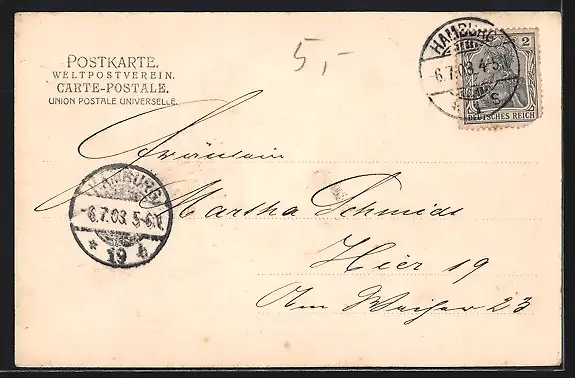 POSTKARTE.
WELTPOSTVEREIN.
CARTE-POSTALE.
UNION POSTALE UNIVERSELLE.
5,-
HAMBURG
6.7.03. 4-5
1 s.
2
DEUTSCHES REICH
Fräulein
Martha Schmidt
Hier 19
Am Weiher 23
HAMBURG
6.7.03. 5-6
* 19 *